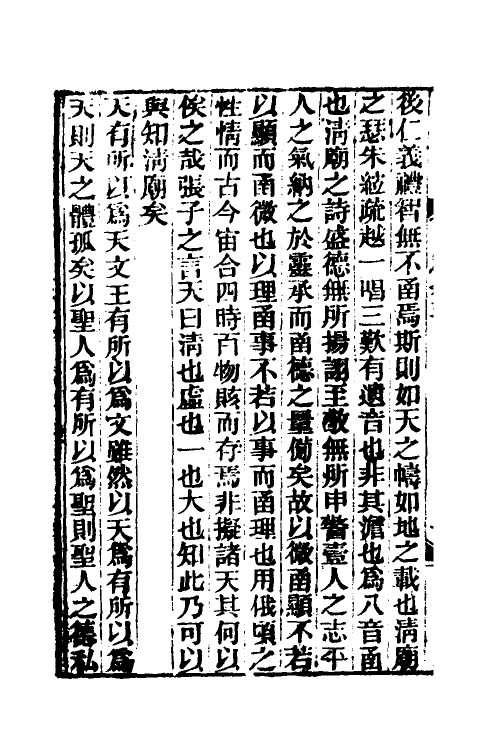 後仁義禮智無不函焉斯則如天之幬如地之載也淸廟
之瑟朱絃疏越一唱三歎有遺音也非其澹也爲八音函
也淸廟之詩盛德無所揚詡至敬無所申警壹人之志平
人之氣納之於靈承而函德之量備矣故以微函顯不若
以顯而函微也以理函事不若以事而函理也用俄頃之
性情而古今宙合四時百物賅而存焉非擬諸天其何以
俟之哉張子之言天曰淸也虛也一也大也知此乃可以
與知淸廟矣
天有所以爲天文王有所以爲文雖然以天爲有所以爲
天則天之體孤矣以聖人爲有所以爲聖則聖人之德私